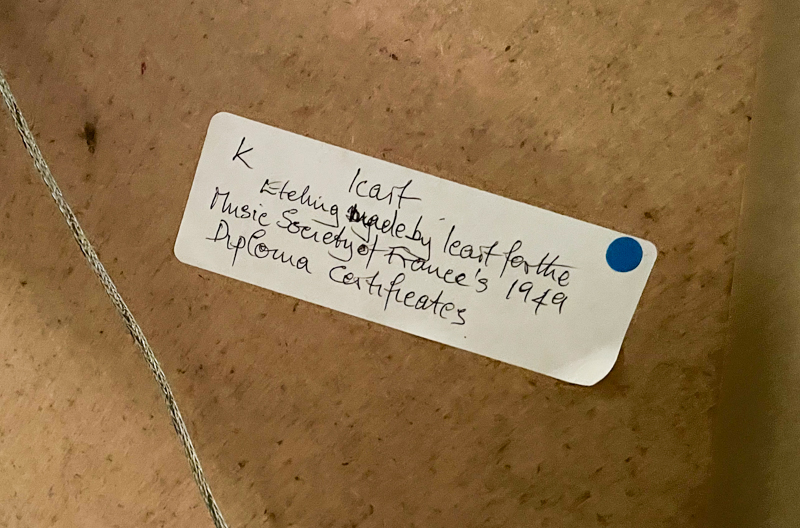 K
Icart
Etching made by Icart for the
Music Society of France's 1949
Diploma Certificates